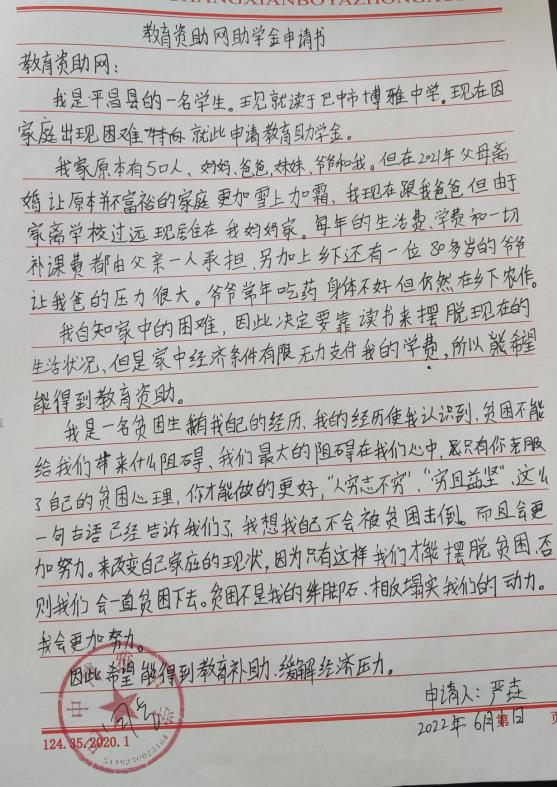 教育资助网助学金申请书
教育资助网：
我是平昌县的一名学生。现就读于巴中市博雅中学。现在因
家庭出现困难 特向 就此申请教育助学金。
我家原本有5口人、妈妈、爸爸、妹妹、爷爷和我。但在2021年父母离
婚让原本并不富裕的家庭更加雪上加霜，我现在跟我爸爸但由于
家离学校过远 现居住在我妈妈家。每年的生活费、学费和一切
补课费都由父亲一人承担、另加上乡下还有一位80多岁的爷爷
让我爸的压力很大。爷爷常年吃药 身体不好但仍然在乡下农作。
我自知家中的困难，因此决定要靠读书来摆脱现在的
生活状况、但是家中经济条件有限无力支付我的学费，所以 希望
能得到教育资助。
我是一名贫困生 有我自己的经历、我的经历使我认识到、贫困不能
给我们带来什么阻碍、我们最大的阻碍在我们心中， 只有你克服
了自己的贫困心理，你才能做的更好，“人穷志不穷”，“穷且益坚”，这么
一句古语已经告诉我们了，我想我自己不会被贫困击倒。而且会更
加努力。来改变自己家庭的现状，因为只有这样我们才能摆脱贫困，否
则我们会一直贫困下去。贫困不是我的绊脚石、相反塌实我们的动力。
我会更加努力。
因此希望能得到教育补助、缓解经济压力。
申请人：严
2022年6月 日
第 页
124.35.2020.1
5119230023184